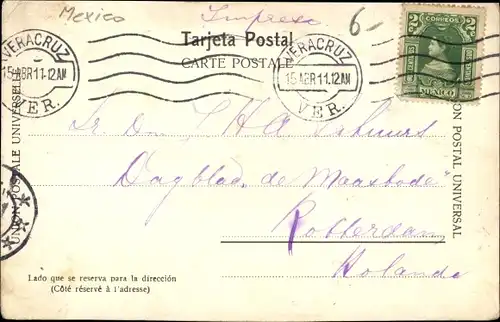 Mexico
Impreso
6-
Tarjeta Postal
CARTE POSTALE
VERACRUZ
15 ABR 11. 12 AM
VER.
VERACRUZ
15 ABR 11. 12 AM
VER.
2
CORREOS
2
CENTAVOS
CENTAVOS
MEXICO
UNION POSTALE UNIVERSELLE
UNION POSTAL UNIVERSAL
Sr. Don J H A
Dagblad "de Maasbode"
Rotterdam
Holanda
Lado que se reserva para la dirección
(Côté réservé à l'adresse)